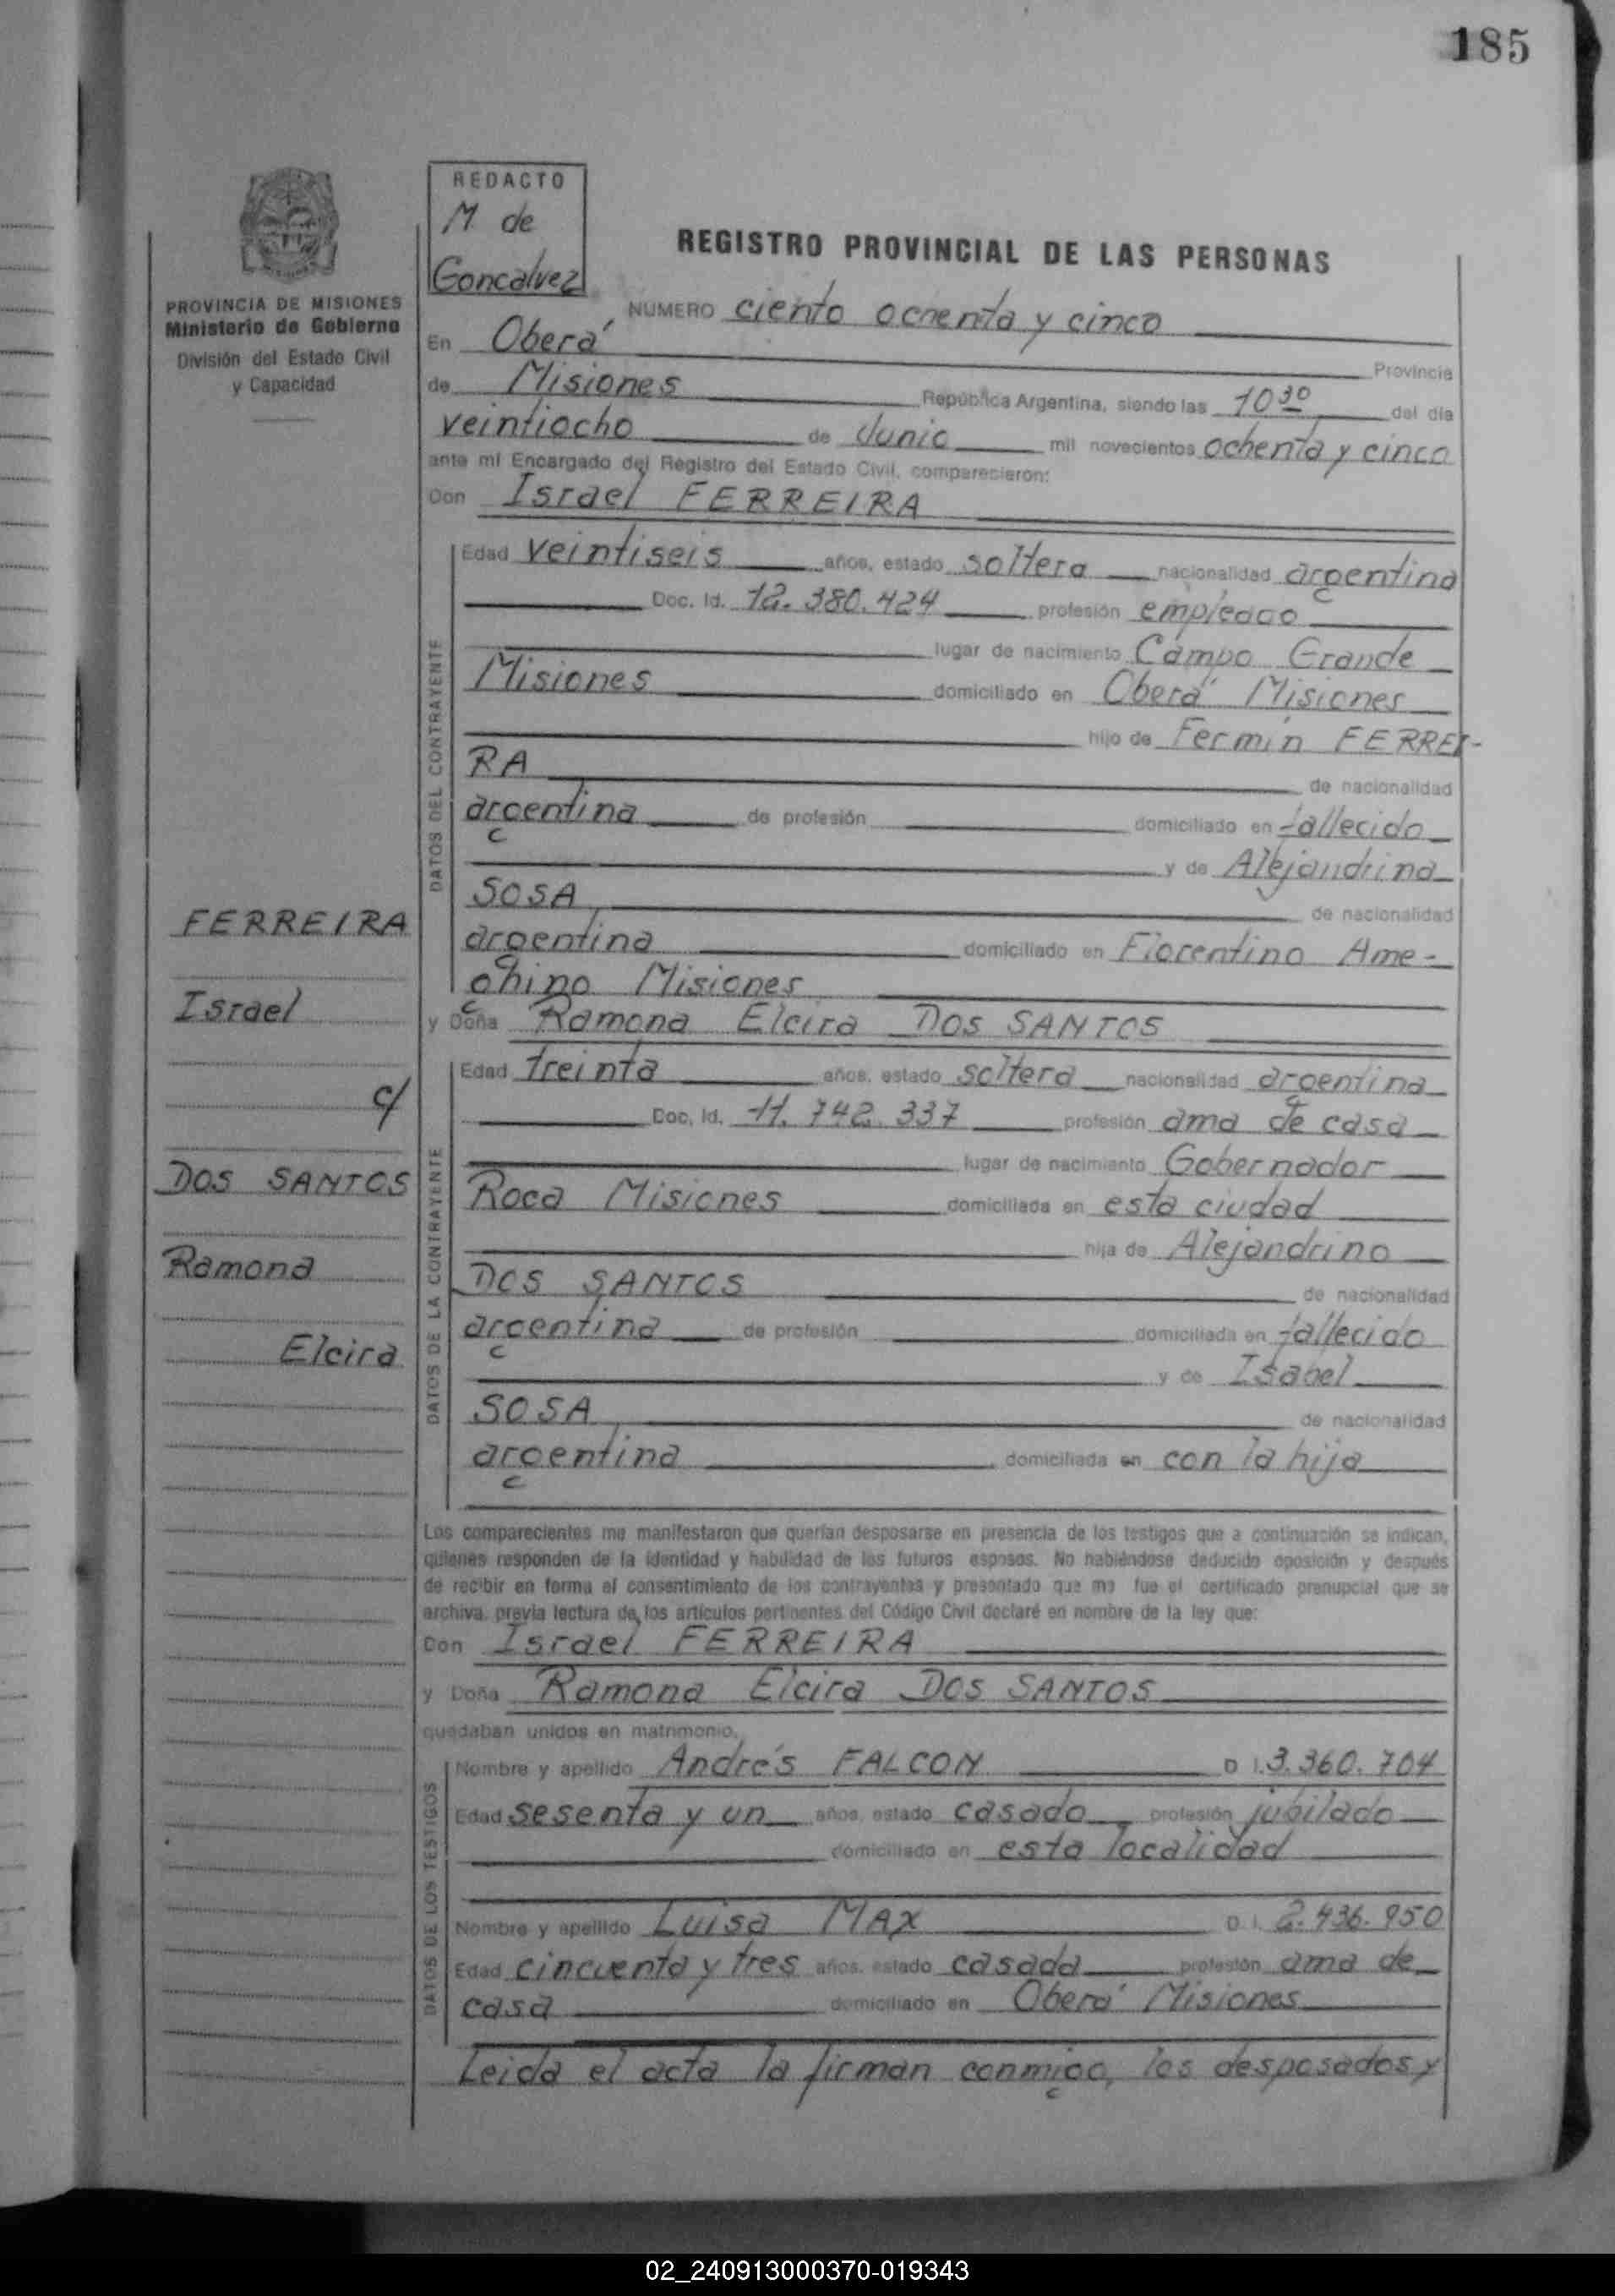 185
REDACTO
M. de
Goncalvez
REGISTRO PROVINCIAL DE LAS PERSONAS
PROVINCIA DE MISIONES
Ministerio de Gobierno
División del Estado Civil
y Capacidad
NUMERO ciento ochenta y cinco
En Oberá Provincia
de Misiones República Argentina, siendo las 10 30 del día
veintiocho de Junio mil novecientos ochenta y cinco
ante mí Encargado del Registro del Estado Civil, comparecieron:
Don Israel FERREIRA
DATOS DEL CONTRAYENTE
Edad veintiseis años, estado soltero nacionalidad argentina
Doc. Id. 12.380.424 profesión empleado
lugar de nacimiento Campo Grande
Misiones domiciliado en Oberá Misiones
hijo de Fermín FERREI-
RA de nacionalidad
argentina de profesión domiciliado en fallecido
y de Alejandrina
SOSA de nacionalidad
argentina domiciliado en Florentino Ame-
ghino Misiones
y Doña Ramona Elcira DOS SANTOS
DATOS DE LA CONTRAYENTE
Edad treinta años, estado soltera nacionalidad argentina
Doc. Id. 11.742.337 profesión ama de casa
lugar de nacimiento Gobernador
Roca Misiones domiciliada en esta ciudad
hija de Alejandrino
DOS SANTOS de nacionalidad
argentina de profesión domiciliada en fallecido
y de Isabel
SOSA de nacionalidad
argentina domiciliada en con la hija
FERREIRA
Israel
c/
DOS SANTOS
Ramona
Elcira
Los comparecientes me manifestaron que querían desposarse en presencia de los testigos que a continuación se indican,
quienes responden de la identidad y habilidad de los futuros esposos. No habiéndose deducido oposición y después
de recibir en forma el consentimiento de los contrayentes y presentado que me fue el certificado prenupcial que se
archiva, previa lectura de los artículos pertinentes del Código Civil declaré en nombre de la ley que:
Don Israel FERREIRA
y Doña Ramona Elcira DOS SANTOS
quedaban unidos en matrimonio.
DATOS DE LOS TESTIGOS
Nombre y apellido Andrés FALCON D I. 3.360.704
Edad sesenta y un años, estado casado profesión jubilado
domiciliado en esta localidad
Nombre y apellido Luisa MAX D. I. 2.436.950
Edad cincuenta y tres años, estado casada profesión ama de
casa domiciliado en Oberá Misiones
Leida el acta la firman conmigo, los desposados y
02_240913000370-019343